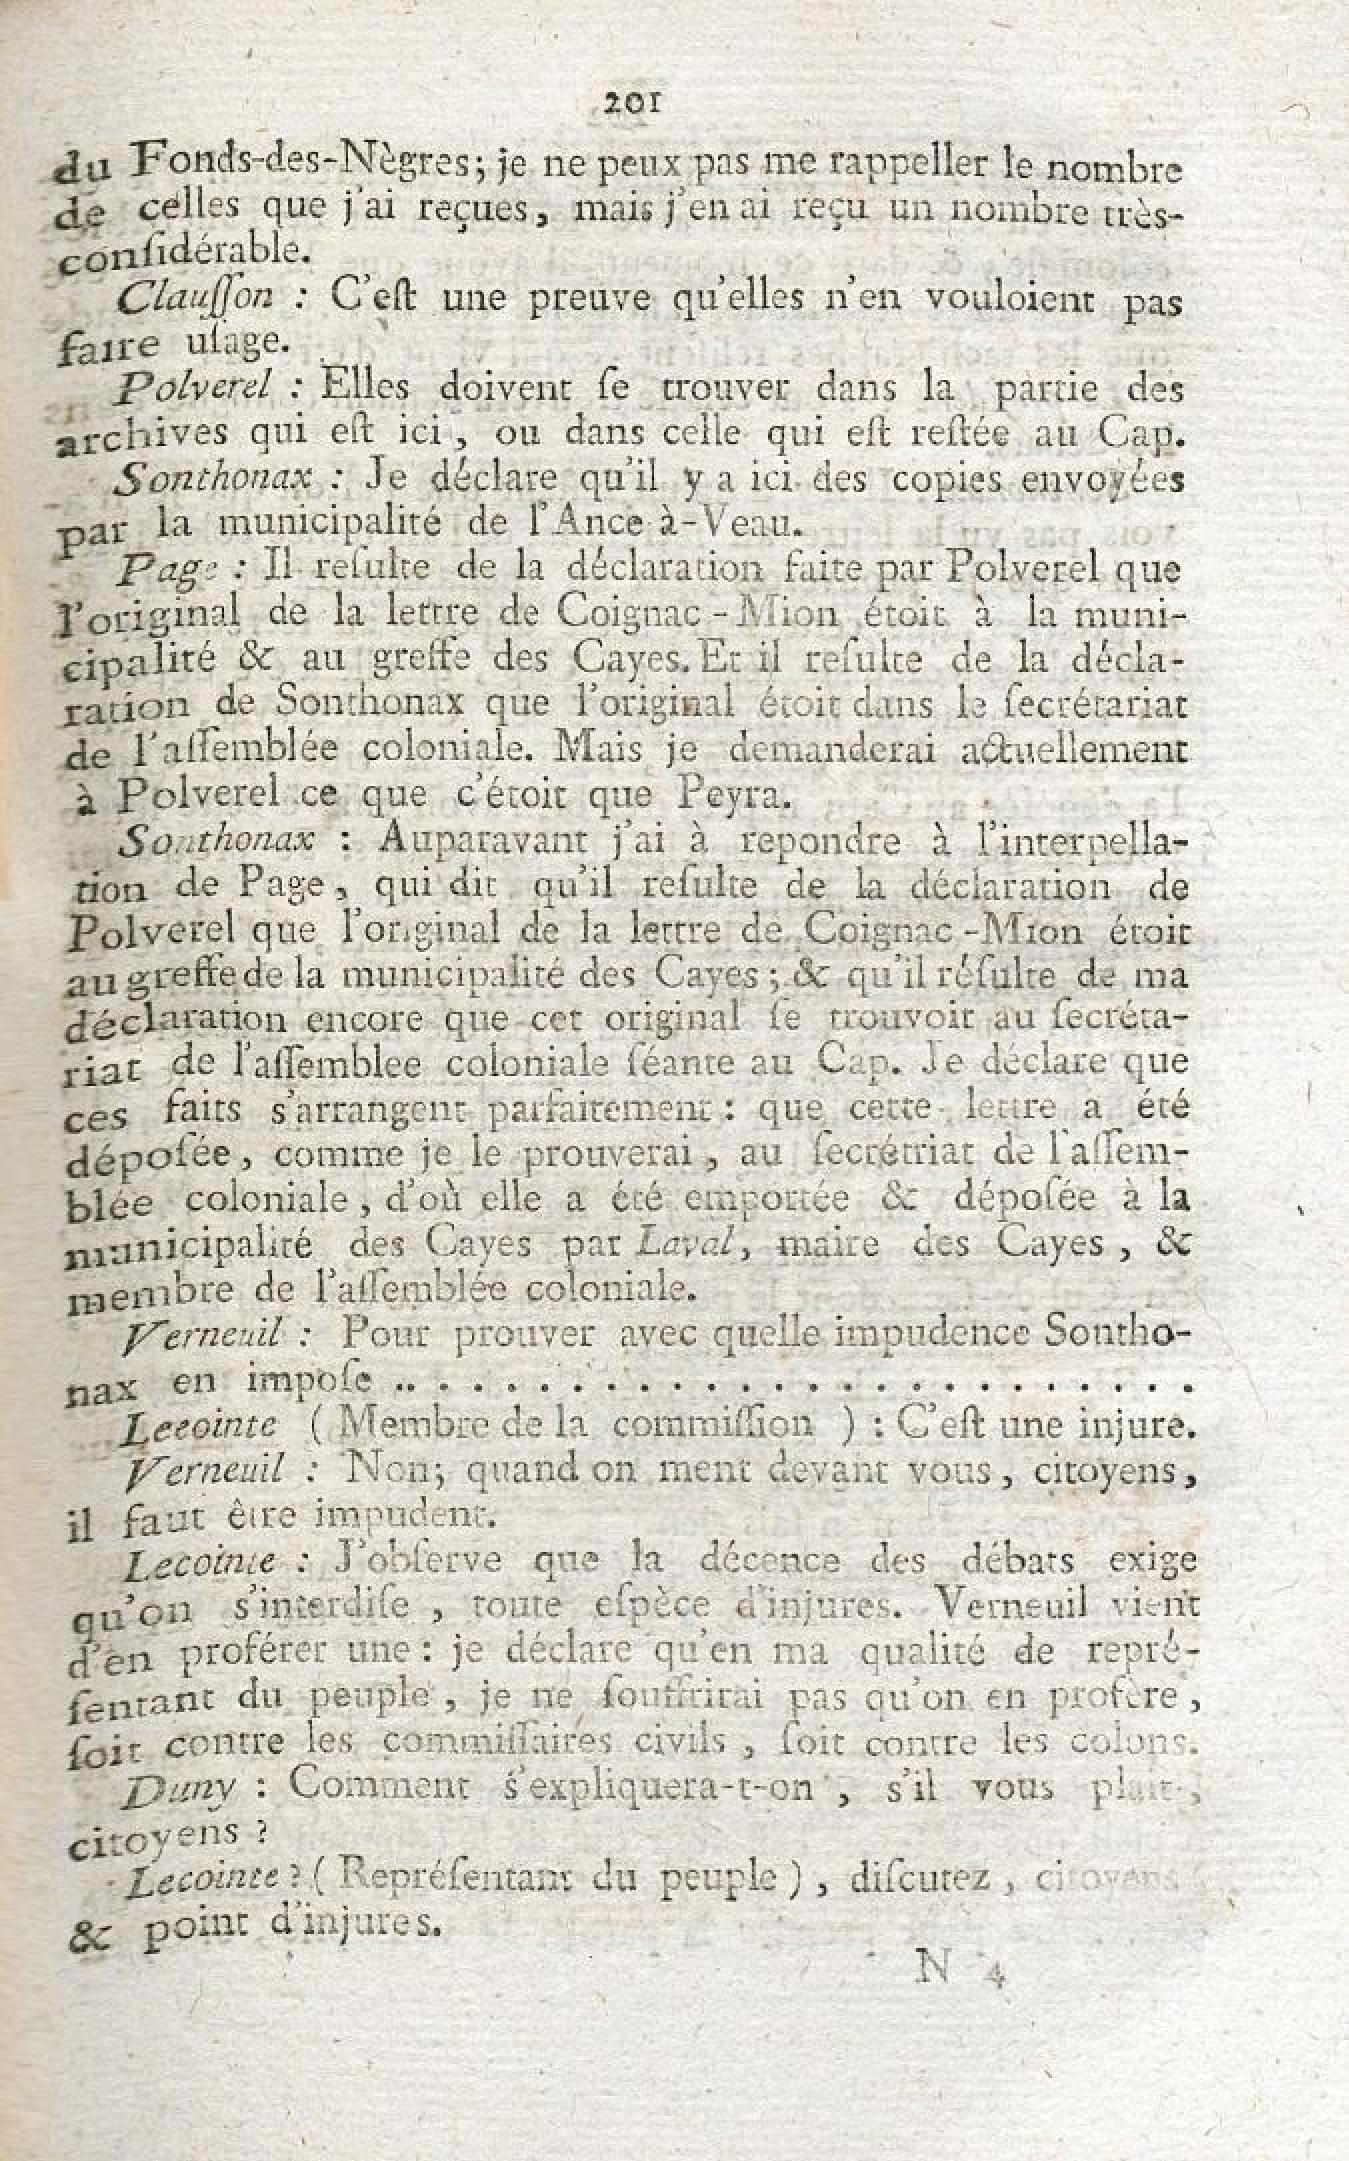 201
du Fonds-des-Nègres; je ne peux pas me rappeller le nombre
de celles que j'ai reçues, mais j'en ai reçu un nombre très-
conſidérable.
Clauſſon : C'eſt une preuve qu'elles n'en vouloient pas
faire uſage.
Polverel : Elles doivent ſe trouver dans la partie des
archives qui eſt ici, ou dans celle qui eſt reſtée au Cap.
Sonthonax : Je déclare qu'il y a ici des copies envoyées
par la municipalité de l'Ance à-Veau.
Page : Il reſulte de la déclaration faite par Polverel que
l'original de la lettre de Coignac-Mion étoit à la muni-
cipalité & au greffe des Cayes. Et il reſulte de la décla-
ration de Sonthonax que l'original étoit dans le ſecrétariat
de l'aſſemblée coloniale. Mais je demanderai actuellement
à Polverel ce que c'étoit que Peyra.
Sonthonax : Auparavant j'ai à repondre à l'interpella-
tion de Page, qui dit qu'il reſulte de la déclaration de
Polverel que l'original de la lettre de Coignac-Mion étoit
au greffe de la municipalité des Cayes; & qu'il réſulte de ma
déclaration encore que cet original ſe trouvoit au ſecréta-
riat de l'aſſemblee coloniale ſéante au Cap. Je déclare que
ces faits s'arrangent parfaitement : que cette lettre a été
dépoſée, comme je le prouverai, au ſecrétriat de l'aſſem-
blée coloniale, d'où elle a été emportée & dépoſée à la
municipalité des Cayes par Laval, maire des Cayes, &
membre de l'aſſemblée coloniale.
Verneuil : Pour prouver avec quelle impudence Sontho-
nax en impoſe .. . . . . . . . . . . . . . . . . . . . . . . . .
Leeointe ( Membre de la commiſſion ) : C'eſt une injure.
Verneuil : Non; quand on ment devant vous, citoyens,
il faut être impudent.
Lecointe : J'obſerve que la décence des débats exige
qu'on s'interdiſe, toute eſpèce d'injures. Verneuil vient
d'en proférer une : je déclare qu'en ma qualité de repré-
ſentant du peuple, je ne ſouffrirai pas qu'on en profère,
ſoit contre les commiſſaires civils, ſoit contre les colons.
Duny : Comment s'expliquera-t-on, s'il vous plait,
citoyens ?
Lecointe ? ( Repréſentant du peuple ), diſcutez, citoyens
& point d'injures.
N 4